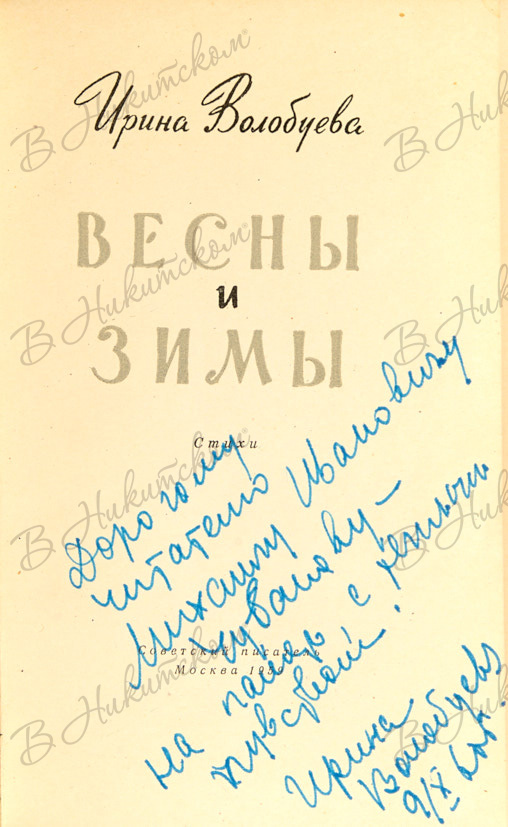 Ирина Волобуева
ВЕСНЫ
и
ЗИМЫ
Стихи
Советский писатель
Москва 1959
Дорогому
читателю
Михаилу Ивановичу
Чуванову –
на память с теплым
чувством!
Ирина
Волобуева
9/X
В. Никитском